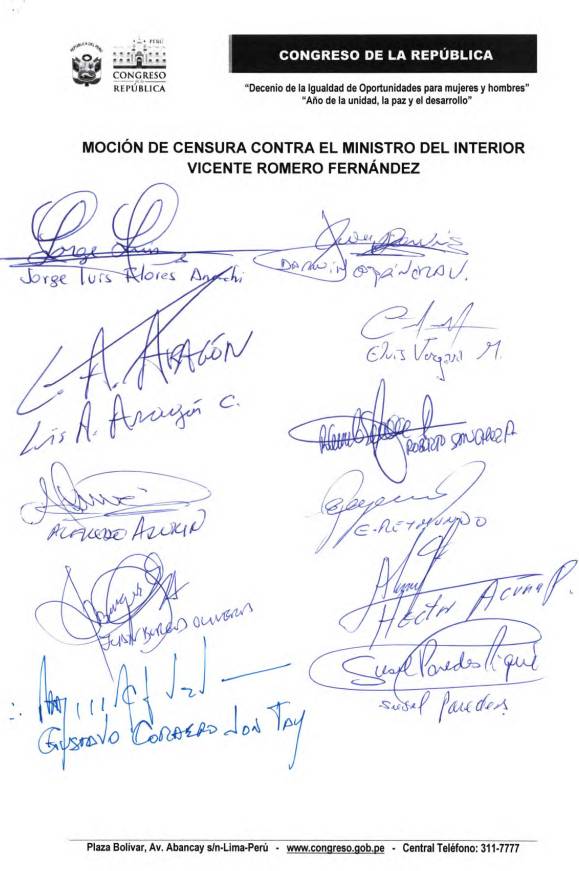 REPÚBLICA DEL PERÚ
PERÚ
CONGRESO
de la
REPÚBLICA
CONGRESO DE LA REPÚBLICA
“Decenio de la Igualdad de Oportunidades para mujeres y hombres”
“Año de la unidad, la paz y el desarrollo”
MOCIÓN DE CENSURA CONTRA EL MINISTRO DEL INTERIOR
VICENTE ROMERO FERNÁNDEZ
Jorge Luis
Jorge Luis Flores Ancachi
DARWIN ESPINOZA V.
L. A. ARAGÓN
Luis A. Aragón C.
Elvis Vergara M.
ROBERTO SANCHEZ P
ALFREDO AZURIN
E. REYMUNDO
JUAN BURGOS OLIVEROS
HECTOR ACUÑA P.
Susel Paredes Piqué
Susel Paredes
GUSTAVO CORDERO JON TAY
Plaza Bolívar, Av. Abancay s/n-Lima-Perú - www.congreso.gob.pe - Central Teléfono: 311-7777